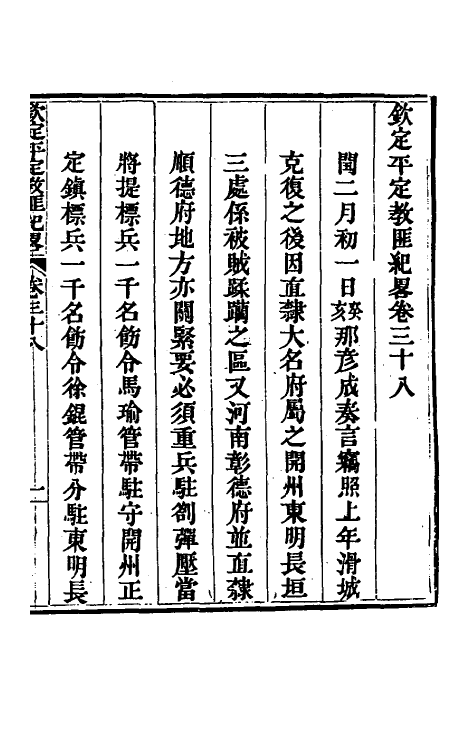 欽定平定教匪紀畧卷三十八
閏二月初一日癸亥那彦成奏言竊照上年滑城
克復之後因直隸大名府屬之開州東明長垣
三處係被賊蹂躪之區又河南彰德府並直隸
順德府地方亦關緊要必須重兵駐劄彈壓當
將提標兵一千名飭令馬瑜管帶駐守開州正
定鎮標兵一千名飭令徐錕管帶分駐東明長
欽定平定教匪紀畧
卷三十八
一